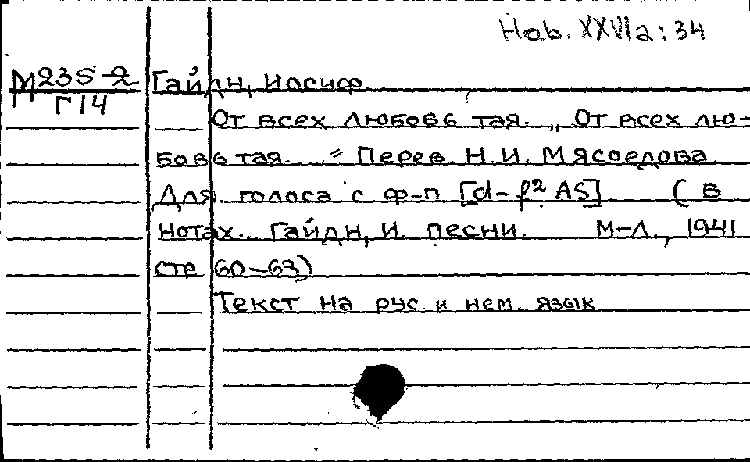 Hob. XXVIa: 34
М235-2 Гайдн, Иосиф
Г14
От всех любовь тая. „От всех лю-
бовь тая... " Перев. Н.И. Мясоедова
Для голоса с ф-п [d-f² AS] (В
нотах. Гайдн, И. Песни. М-Л., 1941
стр 60-63)
Текст на рус. и нем. язык